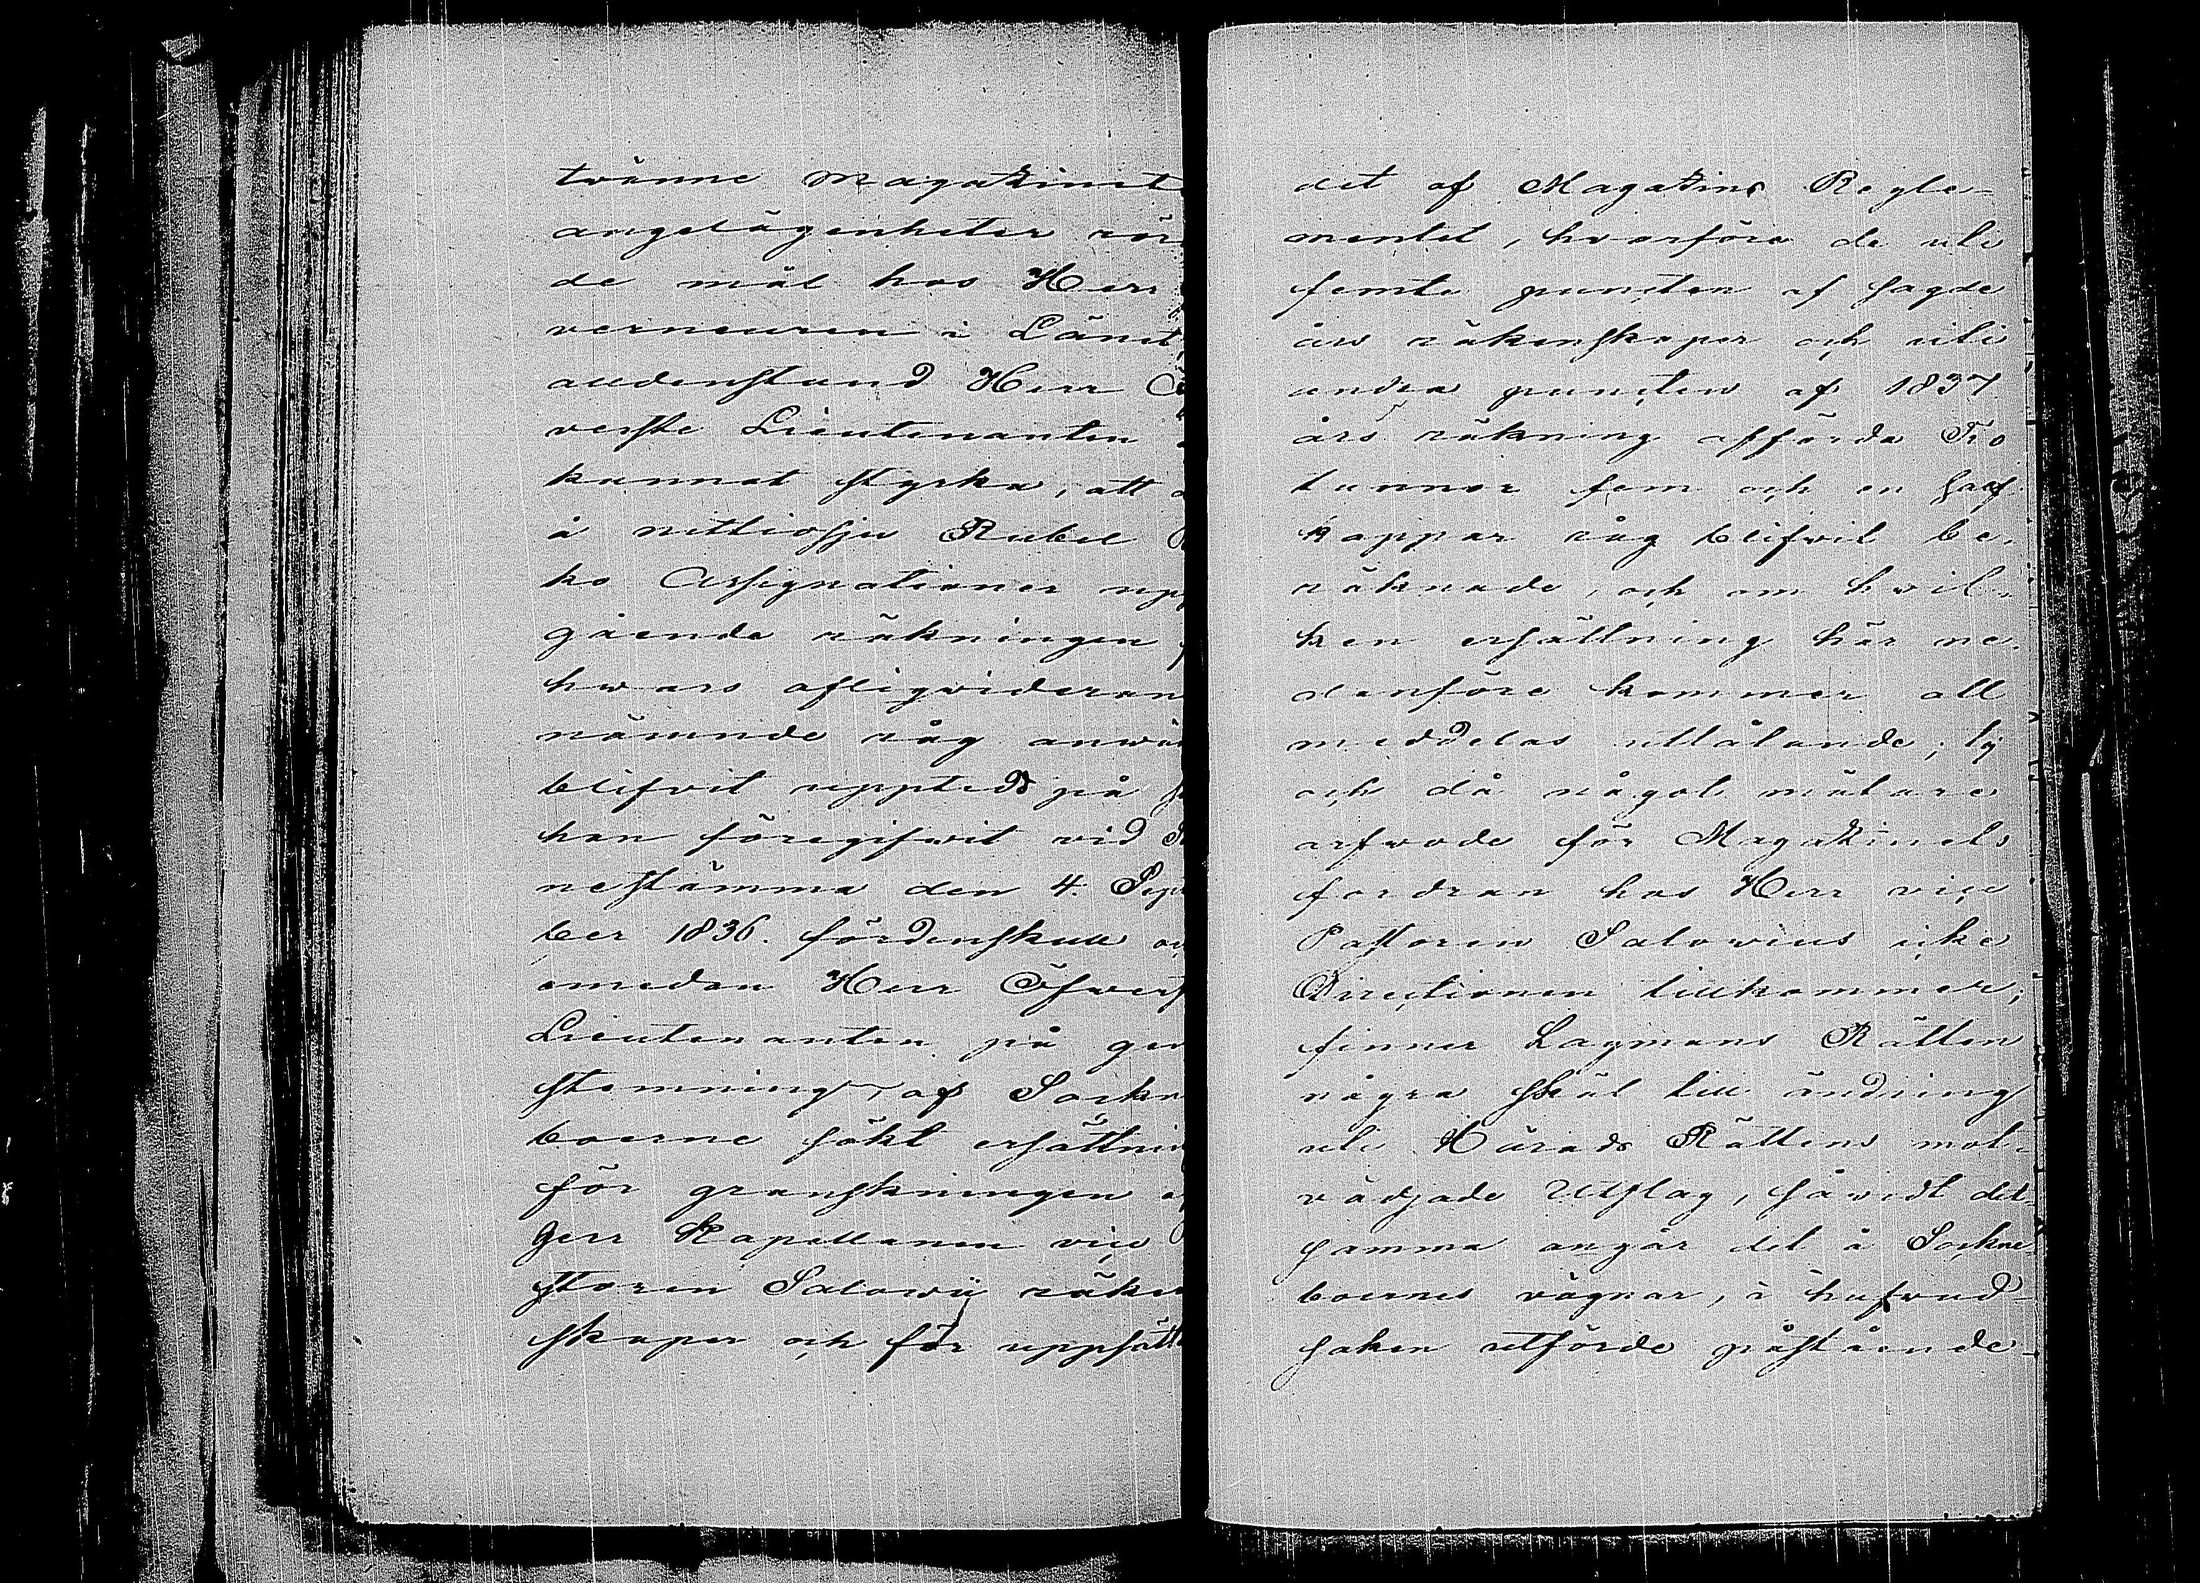 twänne Magazinet
angelägenheter rör
de mål hos Herr
verneuren i Länet,
audenstund Herr Ö
verste Lieutenanten
kunnat styrka, att
å nittiosju Rubel
ko Assignationer upp
gående räkningen
hwars afliqvideran
nämnde råg anwän
blifvit uppteds på
han föregifwit vid
nestämma den 4. Sep
ber 1836. fördenskull oc
emedan Herr Öfwerst
Lieutenanten på gen
stemning, af Sockn
boerne sökt ersättnin
för granskningen a
Herr Kapellanen vice
storen Salovii räken
skaper och för uppsätt
det af Magazins Regle-
mentet, hvarföre de uti
femte puncten af sagde
års räkenskaper och uti
andra puncten af 1837
års räkning afförda Tio
tunnor fem och en half
kappar råg blifvit be-
räknade, och om hvil-
ken ersättning här ne-
danföre kommer att
meddelas utlåtande; ty
och då något mälare
arfwode för Magazinets
fordran hos Herr vice
Pastoren Salovius icke
Directionen tillkommer;
finner Lagmans Rätten
några skäl till ändring
uti Härads Rättens mot-
vädjade Utslag, såvidt det-
samma angår det å Sockne
boernes vägnar, i hufwud-
saken utförde påstående-